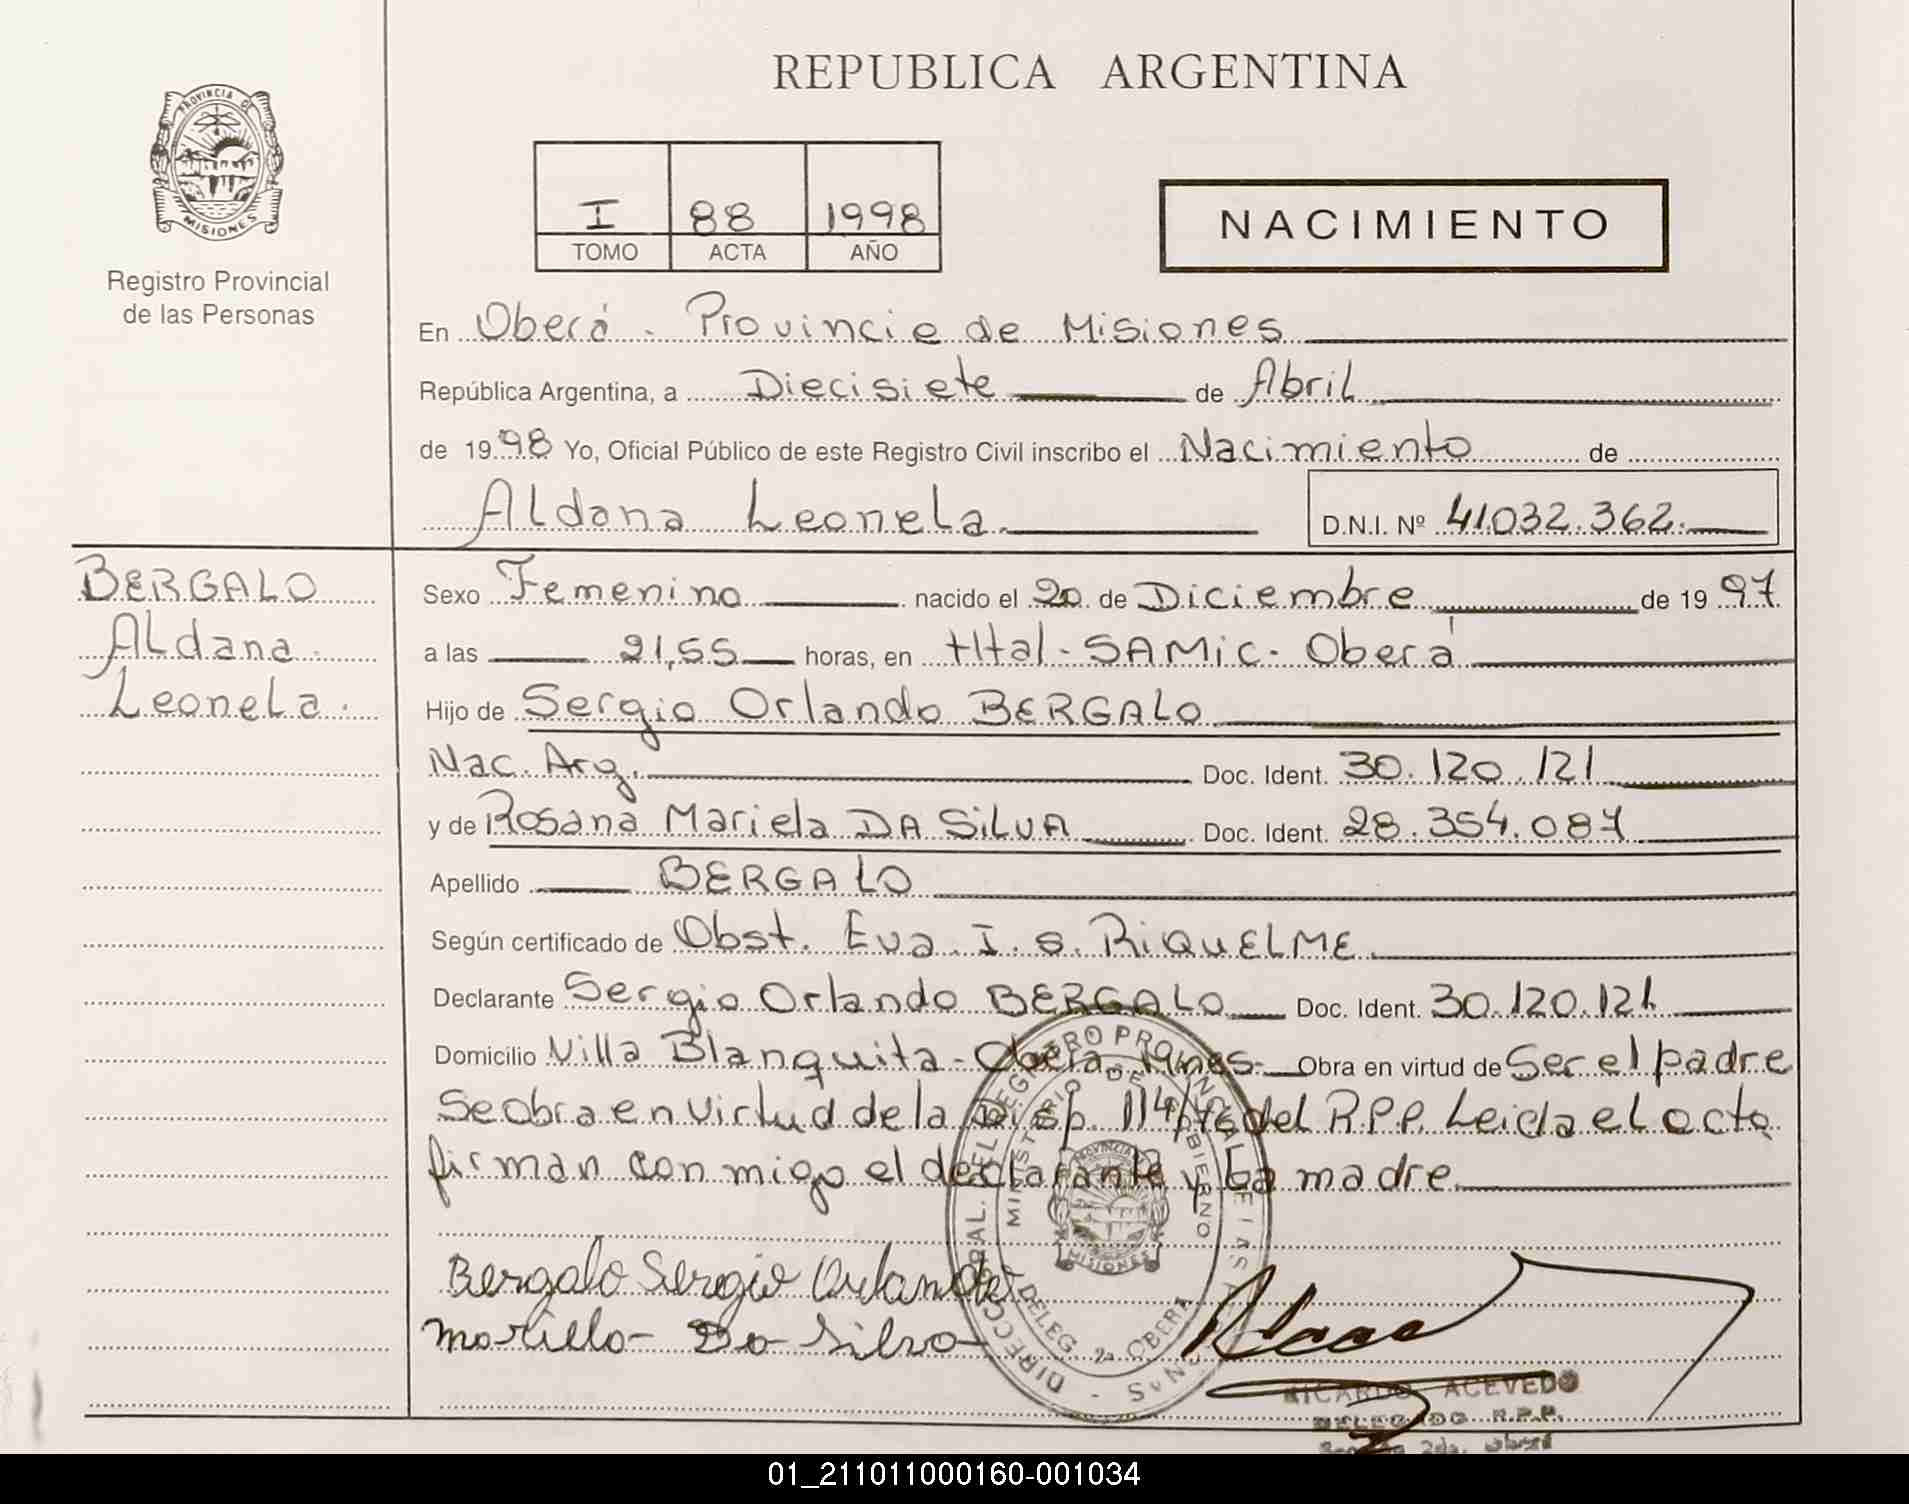 REPUBLICA ARGENTINA
PROVINCIA DE
MISIONES
Registro Provincial
de las Personas
I 88 1998
TOMO ACTA AÑO
NACIMIENTO
En Oberá - Provincia de Misiones
República Argentina, a Diecisiete de Abril
de 1998 Yo, Oficial Público de este Registro Civil inscribo el Nacimiento de
Aldana Leonela. D.N.I. Nº 41.032.362.
BERGALO
Aldana
Leonela.
Sexo Femenino nacido el 20 de Diciembre de 1997
a las 21,55 horas, en Htal - SAMic - Oberá
Hijo de Sergio Orlando BERGALO
Nac. Arg. Doc. Ident. 30.120.121
y de Rosana Mariela DA SiLVA Doc. Ident. 28.354.087
Apellido BERGALO
Según certificado de Obst. Eva I. s. RiQuELME.
Declarante Sergio Orlando BERGALO Doc. Ident. 30.120.121
Domicilio Villa Blanquita - Oberá Mnes - Obra en virtud de Ser el padre
Se obra en virtud de la Disp. 114/78 del R.P.P. Leida el acta
firman conmigo el declarante y la madre.
Bergalo Sergio Orlando
Mariela - Da Silva -
DIRECC. GRAL. DEL REGISTRO PROVINCIAL DE LAS PERSONAS
MINISTERIO DE GOBIERNO
DELEG. 2a OBERA
PROVINCIA DE
MISIONES
RICARDO ACEVEDO
DELEGADO R.P.P.
2da. Oberá
01_211011000160-001034